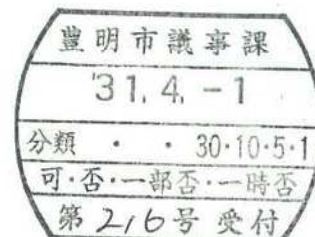 豊明市議事課
'31.4.-1
分類 ・ ・ 30・10・5・1
可・否・一部否・一時否
第216号 受付